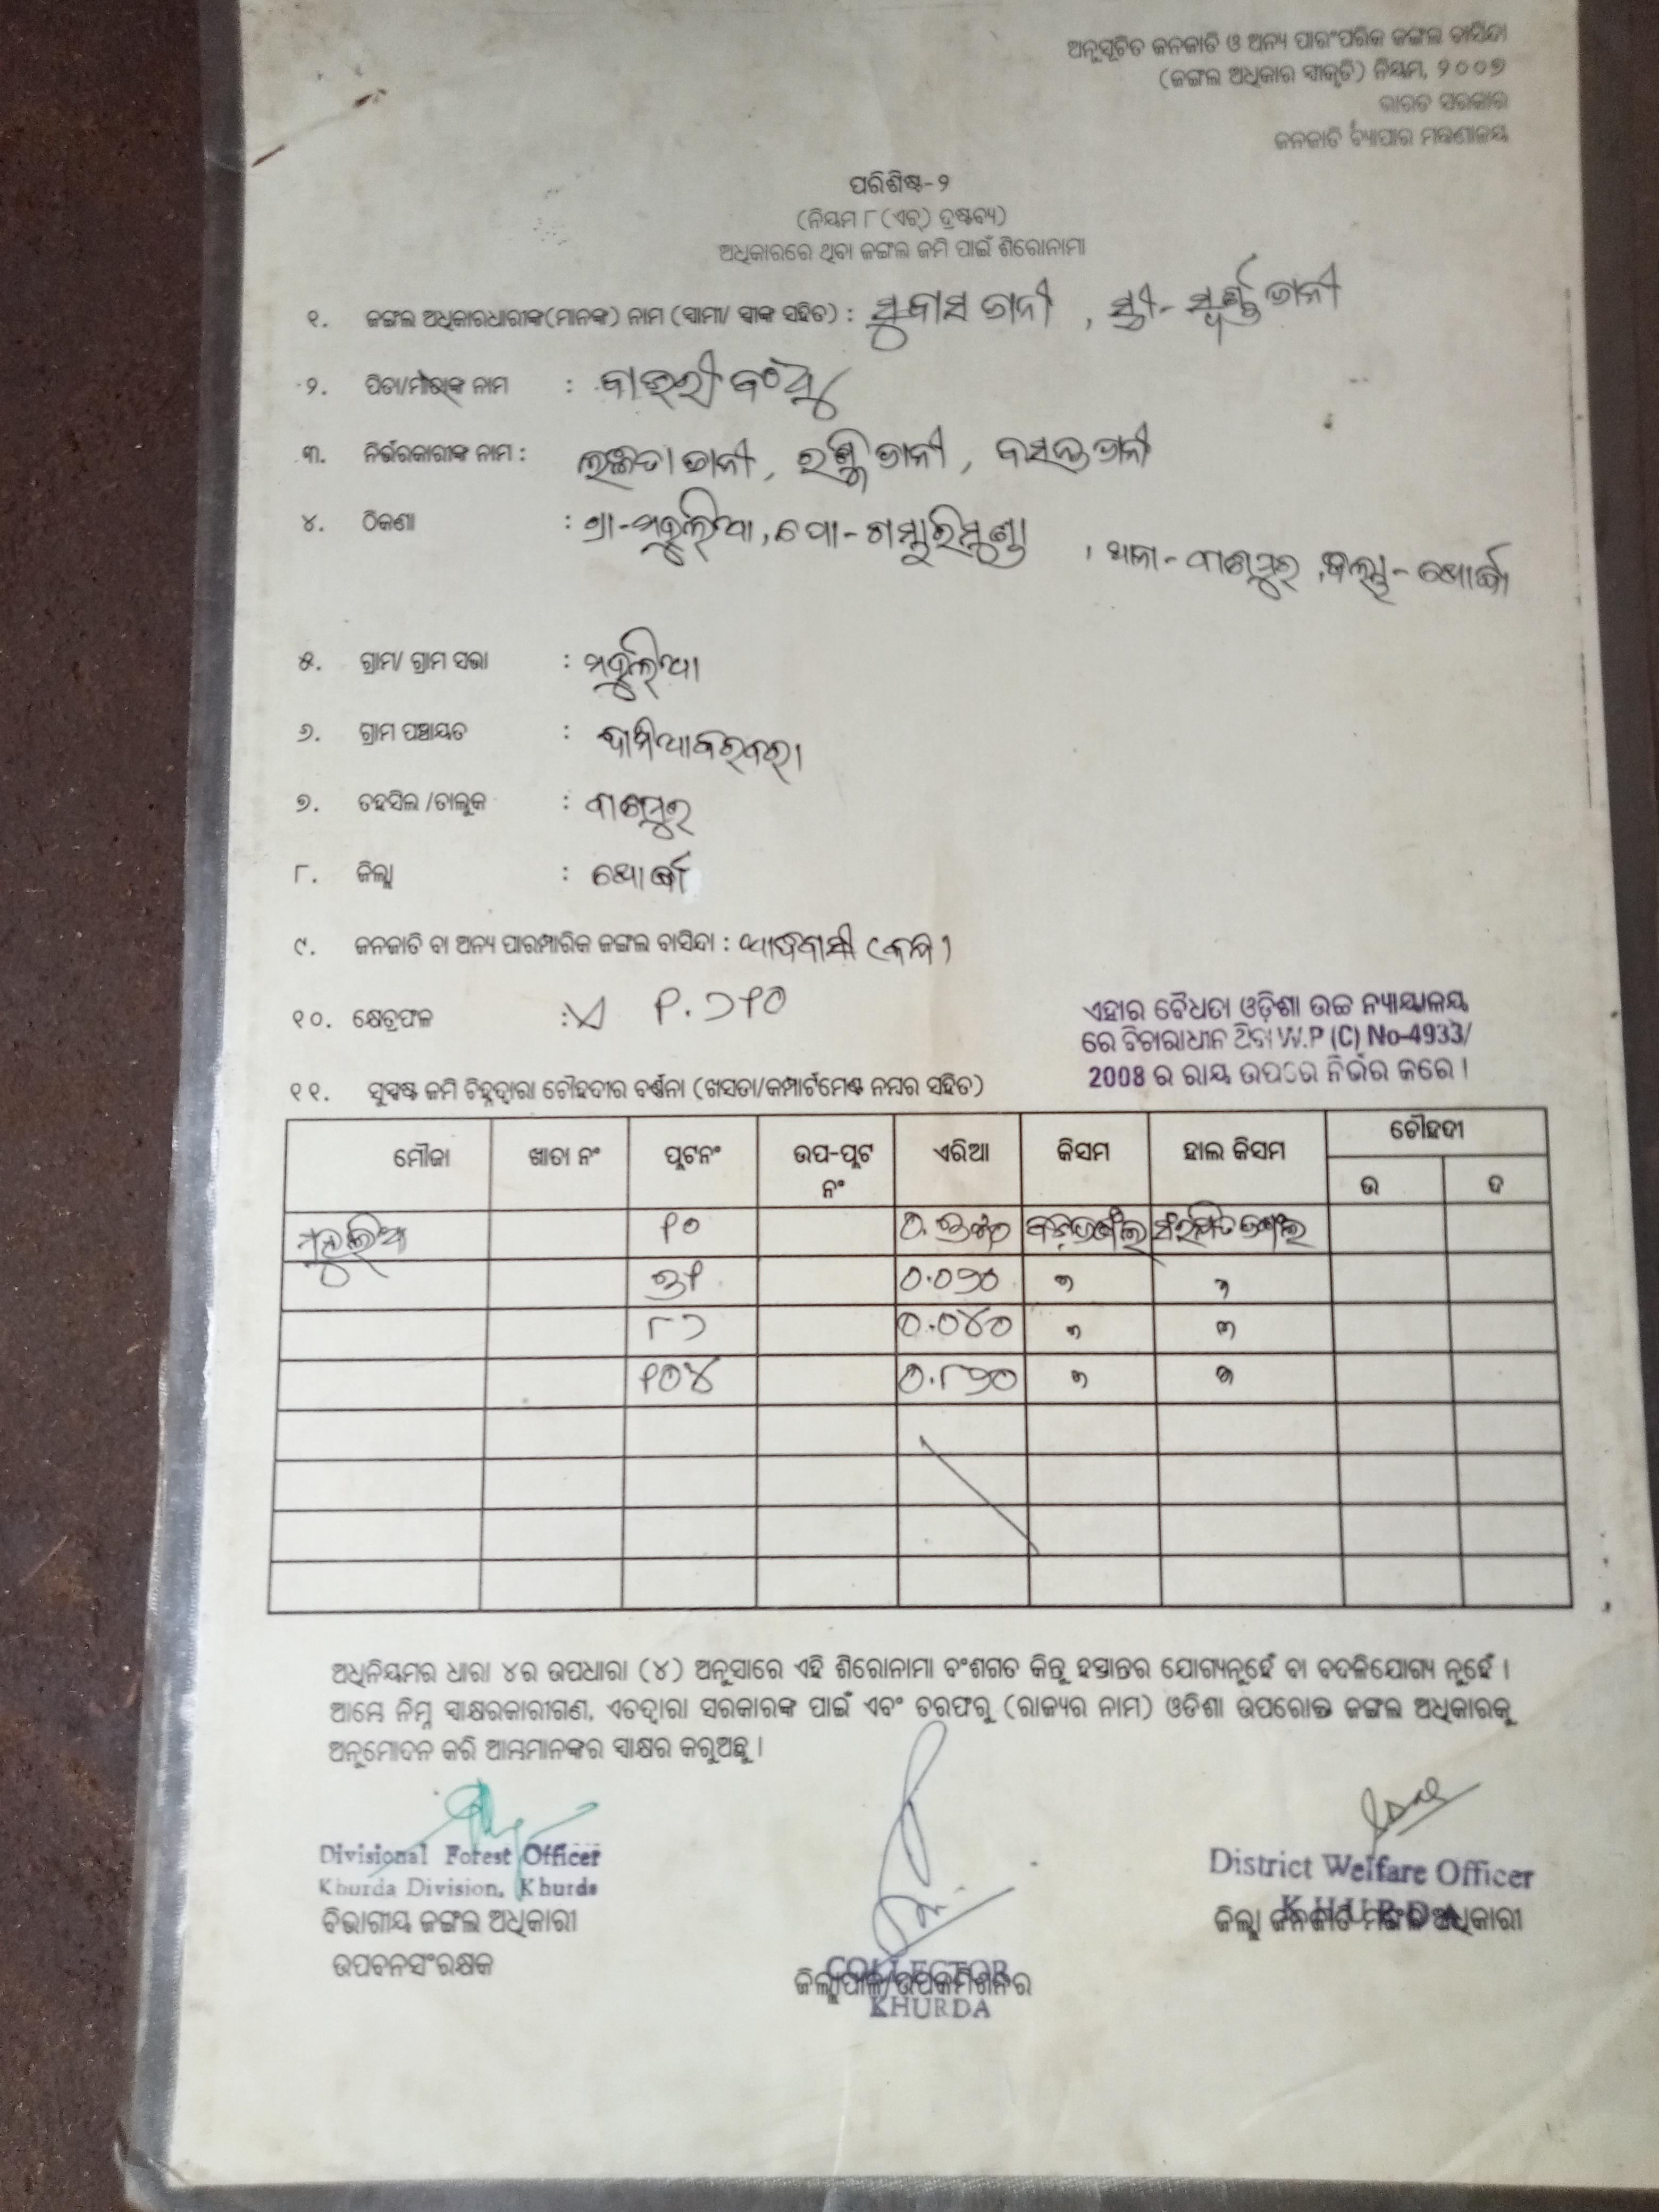 ଅନୁସୂଚିତ ଜନଜାତି ଓ ଅନ୍ୟ ପାରଂପରିକ ଜଙ୍ଗଲ ବାସିନ୍ଦା
(ଜଙ୍ଗଲ ଅଧିକାର ସ୍ୱୀକୃତି) ନିୟମ, ୨୦୦୭
ଭାରତ ସରକାର
ଜନଜାତି ବ୍ୟାପାର ମନ୍ତ୍ରଣାଳୟ
ପରିଶିଷ୍ଟ-୨
(ନିୟମ ୮(ଏଚ୍) ଦ୍ରଷ୍ଟବ୍ୟ)
ଅଧିକାରରେ ଥିବା ଜଙ୍ଗଲ ଜମି ପାଇଁ ଶିରୋନାମା
୧. ଜଙ୍ଗଲ ଅଧିକାରଧାରୀଙ୍କ(ମାନଙ୍କ) ନାମ (ସ୍ୱାମୀ/ ସ୍ତ୍ରୀଙ୍କ ସହିତ) : ସୁବାସ ଜାନୀ, ସ୍ତ୍ରୀ- ସ୍ୱର୍ଣ୍ଣ ଜାନୀ
୨. ପିତା/ମାତାଙ୍କ ନାମ :
୩. ନିର୍ଭରକାରୀଙ୍କ ନାମ : ଜାନୀ, ଜାନୀ, ବସନ୍ତ ଜାନୀ
୪. ଠିକଣା : ଗ୍ରା- ପୋ- ଥାନା- ବାଣପୁର, ଜିଲ୍ଲା- ଖୋର୍ଦ୍ଧା
୫. ଗ୍ରାମ/ ଗ୍ରାମ ସଭା :
୬. ଗ୍ରାମ ପଞ୍ଚାୟତ :
୭. ତହସିଲ /ତାଲୁକ : ବାଣପୁର
୮. ଜିଲ୍ଲା : ଖୋର୍ଦ୍ଧା
୯. ଜନଜାତି ବା ଅନ୍ୟ ପାରମ୍ପାରିକ ଜଙ୍ଗଲ ବାସିନ୍ଦା : ଆଦିବାସୀ (କନ୍ଧ)
୧୦. କ୍ଷେତ୍ରଫଳ : ୧.୨୧୦
ଏହାର ବୈଧତା ଓଡ଼ିଶା ଉଚ୍ଚ ନ୍ୟାୟାଳୟ
ରେ ବିଚାରାଧୀନ ଥିବା W.P (C) No-4933/
2008 ର ରାୟ ଉପରେ ନିର୍ଭର କରେ।
୧୧. ସୁସ୍ପଷ୍ଟ ଜମି ଚିହ୍ନଦ୍ୱାରା ଚୌହଦୀର ବର୍ଣ୍ଣନା (ଖସଡା/କମ୍ପାର୍ଟମେଣ୍ଟ ନମ୍ବର ସହିତ)
ମୌଜା ଖାତା ନଂ ପ୍ଲଟନଂ ଉପ-ପ୍ଲଟ ନଂ ଏରିଆ କିସମ ହାଲ କିସମ ଚୌହଦୀ
ଉ ଦ
୧୦
୩୧ ୦.୦୨୦ "  "
୮୨ ୦.୦୪୦ "  "
୧୦୪ ୦.୮୨୦ "  "
ଅଧିନିୟମର ଧାରା ୪ର ଉପଧାରା (୪) ଅନୁସାରେ ଏହି ଶିରୋନାମା ବଂଶଗତ କିନ୍ତୁ ହସ୍ତାନ୍ତର ଯୋଗ୍ୟନୁହେଁ ବା ବଦଳିଯୋଗ୍ୟ ନୁହେଁ।
ଆମ୍ଭେ ନିମ୍ନ ସ୍ୱାକ୍ଷରକାରୀଗଣ, ଏତଦ୍ୱାରା ସରକାରଙ୍କ ପାଇଁ ଏବଂ ତରଫରୁ (ରାଜ୍ୟର ନାମ) ଓଡିଶା ଉପରୋକ୍ତ ଜଙ୍ଗଲ ଅଧିକାରକୁ
ଅନୁମୋଦନ କରି ଆମ୍ଭମାନଙ୍କର ସ୍ୱାକ୍ଷର କରୁଅଛୁ।
Divisional Forest Officer
Khurda Division, Khurda
ବିଭାଗୀୟ ଜଙ୍ଗଲ ଅଧିକାରୀ
ଉପବନସଂରକ୍ଷକ
COLLECTOR
ଜିଲ୍ଲାପାଳ/ଉପକମିଶନର
KHURDA
District Welfare Officer
KHURDA
ଜିଲ୍ଲା ଜନଜାତି ମଙ୍ଗଳ ଅଧିକାରୀ